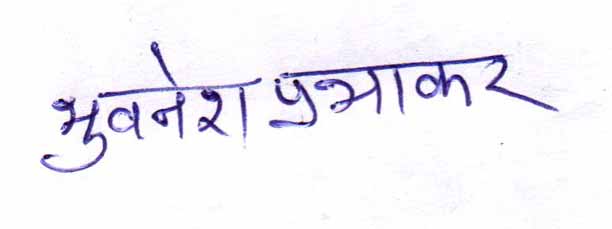 भुवनेश प्रभाकर